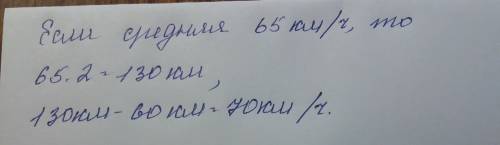 Если средняя 65 км/ч, то
65·2=130км,
130км-60км=70км/ч.